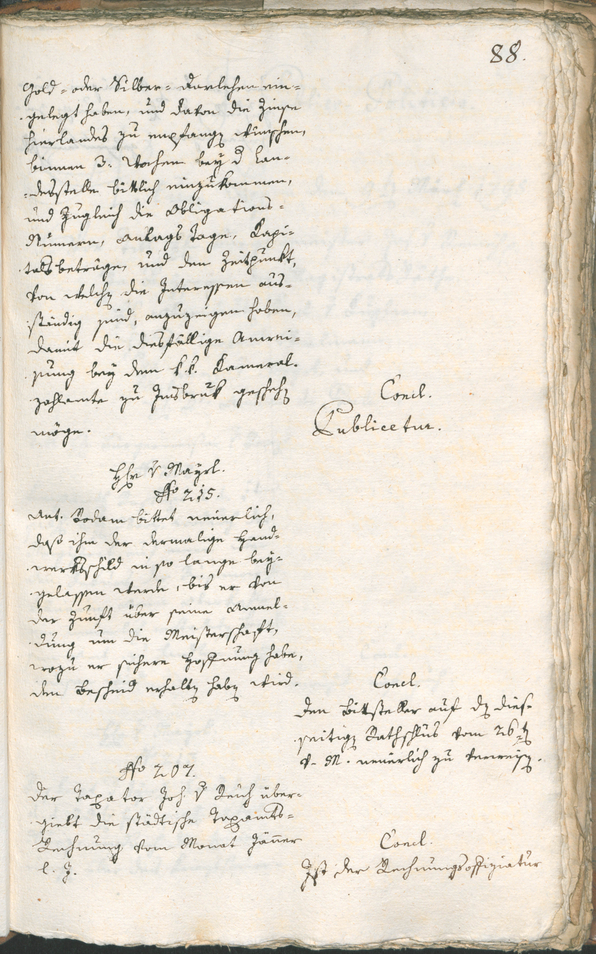 88.
Gold- oder Silber-Darlehen ein-
gelegt haben, und davon die Zinse
hierlandes zu empfangen wünschen,
binnen 3. Wochen bey d Lan-
desstelle bittlich einzukommen,
und zugleich die Obligations-
Numern, Anlags Tage, Kapi-
talsbeträge, und den Zeitpunkt,
von welchen die Interessen aus-
ständig sind, anzuzeigen haben,
damit die diesfällige Anwei-
sung bey dem k.k. Kameral-
zahlamte zu Insbruk geschehen
möge.
Concl.
Publicetur.
Hr v Mayrl.
No 215.
Ant. Rodam bittet neuerlich,
daß ihm der dermalige Hand-
werksschild in so lange bey-
gelassen werde, bis er von
der Zunft über seine Anmel-
dung um die Meisterschaft,
wozu er sichere Hoffnung habe,
den Bescheid erhalten haben wird.
Concl.
Den Bittsteller auf den dies-
seitigen Rathschluß vom 26ten
v. M. neuerlich zu verweisen.
No 207.
Der Taxator Joh. v Reich über-
giebt die städtische Taxamts-
Rechnung vom Monat Jänner
l. J.
Concl.
Ist der Rechnungsoffiziatur